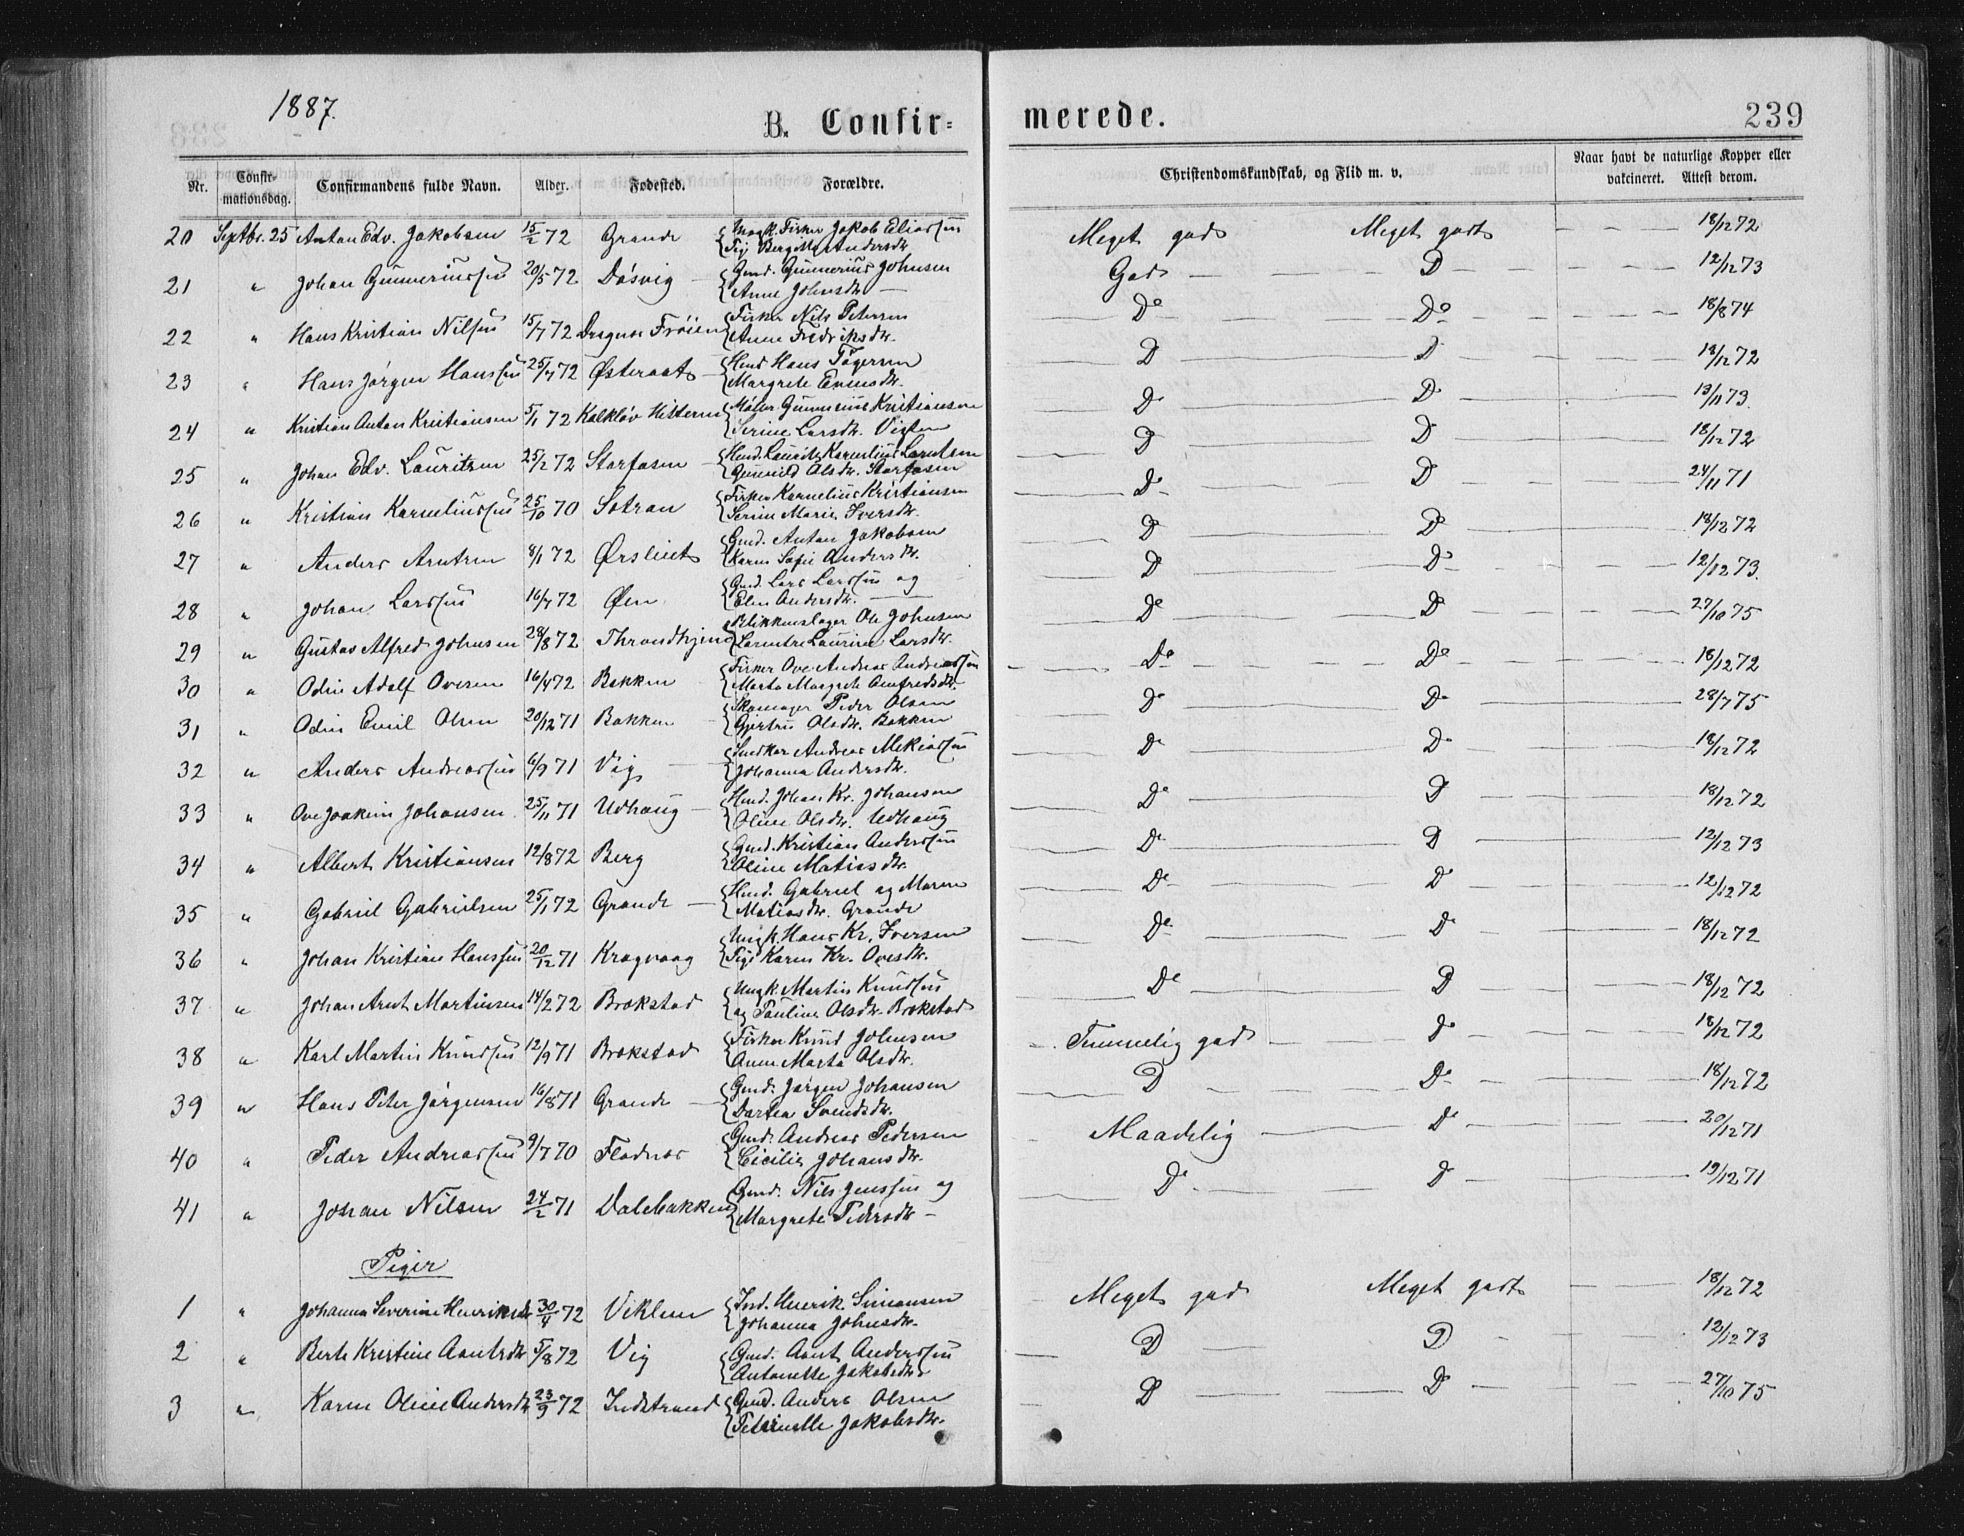 1887.
B. Confir=
merede.
239
Nr.
Confir-
mationsdag.
Confirmandens fulde Navn.
Alder.
Fødested.
Forældre.
Christendomskundskab, og Flid m. v.
Naar havt de naturlige Kopper eller
vakcineret. Attest derom.
20 Septbr. 25 Anton Edv. Jakobsen 15/2 72 Grande {Ungk. Fisker Jakob Eliassen Meget god Meget godt 18/12 72
{Pig Bergitta Andersdtr.
21 " Johan Gunneriussen 20/5 72 Døsvig {Gmd. Gunnerius Johnsen God D 12/12 73
{Anne Johnsdtr.
22 " Hans Kristian Nilssen 15/7 72 Dragnes Frøien {Fisker Nils Petersen Do Do 18/8 74
{Anne Fredriksdtr.
23 " Hans Jørgen Hanssen 25/7 72 Østeraat {Hmd Hans Tøgersen D D 18/12 72
{Margrete Evensdtr.
24 " Kristian Anton Kristiansen 5/1 72 Kalkløv Hitteren {Maler Gunnerius Kristiansen Do Do 13/11 73.
{Serine Larsdtr.
25 " Johan Edv. Lauritzen 25/2 72 Storfosen {Hmd. Laurits Kornelius Larntsen D D 18/12 72
{Gunnild Olsdtr. Storfosen
26 " Kristian Korneliussen 25/10 70 Sotran {Fisker Kornelius Kristiansen Do D 24/11 71
{Serine Marie Iversdtr.
27 " Anders Arntsen 8/1 72 Ørsliet {Gmd. Anton Jakobsen D D 18/12 72
{Karen Sofie Andersdtr.
28 " Johan Larssen 16/7 72 Øien {Gmd. Lars Larssen og D Do 12/12 73.
{Elen Andersdtr.
29 " Gustav Alfred Johnsen 28/8 72 Throndhjem {Blikkenslager Ole Johnsen Do D 27/10 75
{Larentze Laurine Larsdtr.
30 " Odin Adolf Ovesen 16/4 72 Bakken {Fisker Ove Andreas Andreassen Do Do 18/12 72
{Marta Margrete Arnfredsdtr.
31 " Odin Emil Olsen 20/12 71 Bakken {Skomager Peder Olsen Do D 28/7 75
{Gjertru Olsdtr. Bakken
32 " Anders Andreassen 6/9 71 Vig {Snedker Andreas Mekiassen Do D 18/12 72
{Johanna Andersdtr.
33 " Ove Joakim Johansen 25/11 71 Udhaug {Hmd. Johan Kr. Johansen Do D 18/12 72
{Oline Olsdtr. Udhaug
34 " Albert Kristiansen 12/8 72 Berg {Gmd. Kristian Anderssen Do D 12/12 73
{Oline Matiasdtr.
35 " Gabriel Gabrielsen 25/1 72 Grande {Hmd. Gabriel og Maren Do D 12/12 72
{Matiasdtr. Grande
36 " Johan Kristian Hanssen 20/12 71 Kragvaag {Ungk. Hans Kr. Iversen Do D 18/12 72
{Pige Karen Kr. Ovesdtr.
37 " Johan Arnt Martinsen 14/2 72 Brekstad {Ungk. Martin Knudsen Do D 18/12 72
{og Pauline Olsdtr. Brekstad
38 " Karl Martin Knudsen 12/9 71 Brekstad {Fisker Knud Johnsen Temmelig god D 18/12 72
{Anne Marta Olsdtr.
39 " Hans Peter Jørgensen 16/8 71 Grande {Gmd. Jørgen Johansen D Do 18/12 72
{Dortea Svendsdtr.
40 " Peder Andreassen 9/7 70 Flatnes {Gmd. Andreas Pedersen Maadelig D 20/12 71
{Cicilie Johansdtr.
41 " Johan Nilsen 24/2 71 Dalebakken {Gmd. Nils Jenssen og D D 19/12 71
{Margrete Pedersdtr
Piger
1 " Johanna Severine Henriksdtr 30/4 72 Viklem {Ind. Henrik Simonsen Meget god Meget godt 18/12 72
{Johanna Johnsdtr.
2 " Berte Kristine Arntsdtr 5/8 72 Vig {Gmd. Arnt Anderssen D D 12/12 73
{Antonette Jakobsdtr
3 " Karen Oline Andersdtr 23/9 72 Indstrand {Gmd. Anders Olsen D D 27/10 75
{Petrinelle Jakobsdtr.